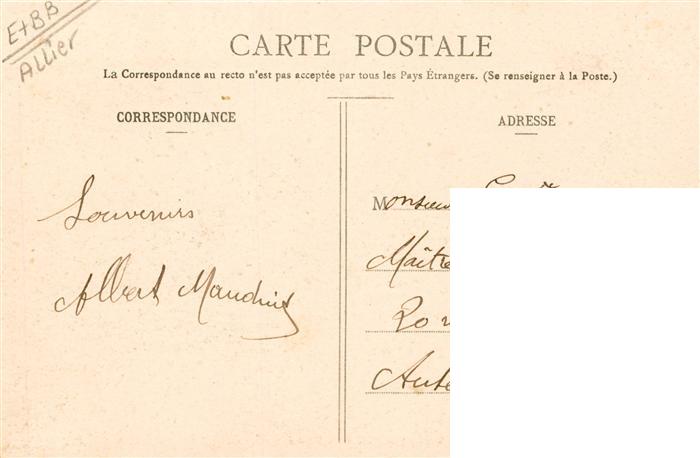 E+BB
Allier
CARTE POSTALE
La Correspondance au recto n'est pas acceptée par tous les Pays Étrangers. (Se renseigner à la Poste.)
CORRESPONDANCE
ADRESSE
Souvenirs
Albert
Monsieur
Maître
20